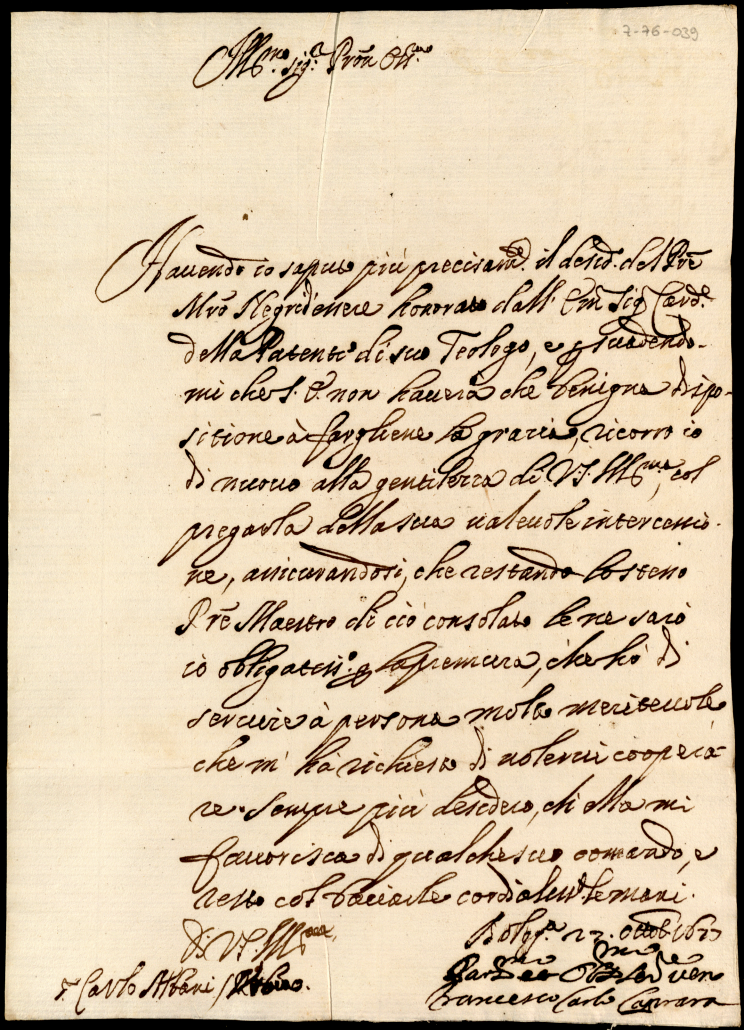 7-76-039
Ill.mo sig.r Prõn Oss.mo
Hauendo io saputo più precisam.te il desid.o del Prẽ
Mrõ Negri d'essere honorato dall' Em̃ Sig. Card.e
della Patente di suo Teologo, e p̱suadendo-
mi che S. E. non hauerà che benigna dispo-
sitione à fargliene la gratia, ricorro io
di nuouo alla gentilezza di V.S. Ill.ma, col
pregarla della sua ualeuole intercessio-
ne, assicurandosi, che restando lo stesso
Prẽ Maestro di ciò consolato le ne sarò
io obligatiss.o p̱ la premura, che hò di
seruire à persona molto meriteuole
che m' hà richiesto di uolerui coopera-
re. Sempre più desidero, ch' Ella mi
fauorisca di qualche suo comando, e
resto col bacciarle cordialm.te le mani.
Di V.S. Ill.ma
Bolog.a 27. Ottob.
Carlo Albani / Urbino.
Francesco Carlo Caprara